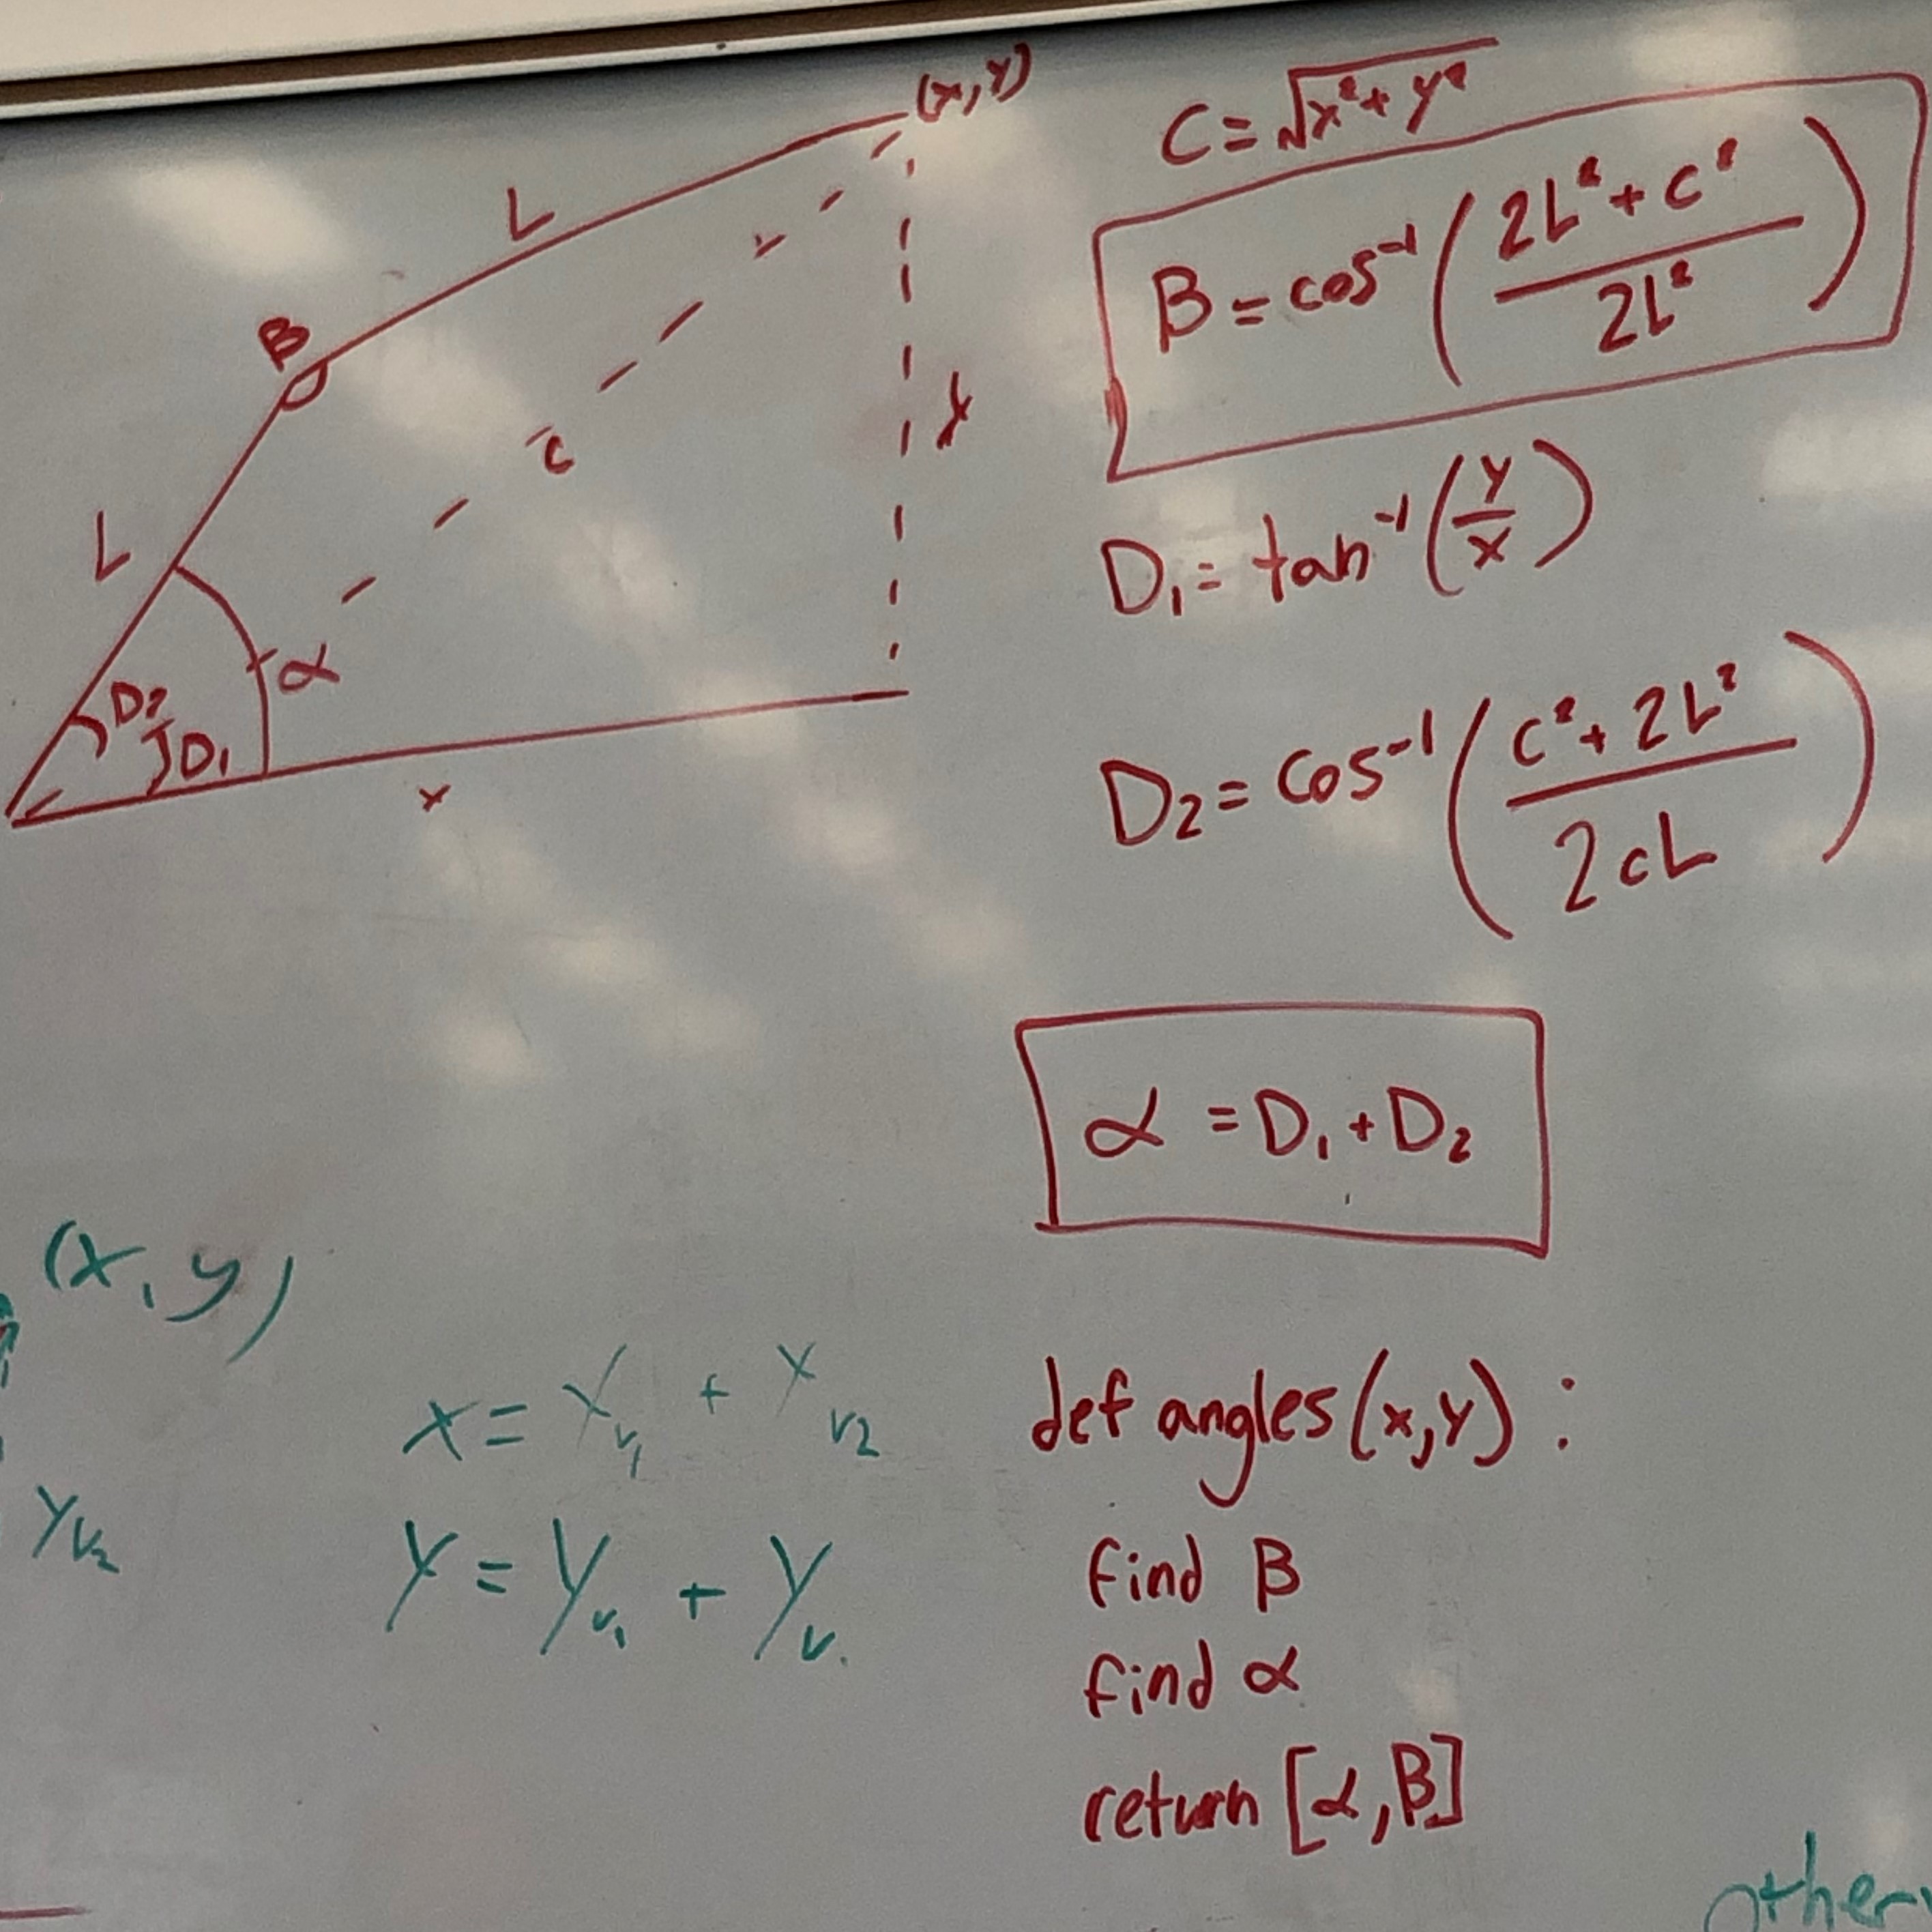 (x,y)
L
B
C
y
L
α
D₂
D₁
x
C = √x² + y²
B = cos⁻¹ ( 2L² + C² / 2L² )
D₁ = tan⁻¹ ( y / x )
D₂ = cos⁻¹ ( C² + 2L² / 2cL )
α = D₁ + D₂
(x, y)
x = x_v₁ + x_v2
y_v₂
y = y_v₁ + y_v.
def angles (x,y) :
find B
find α
return [α,B]